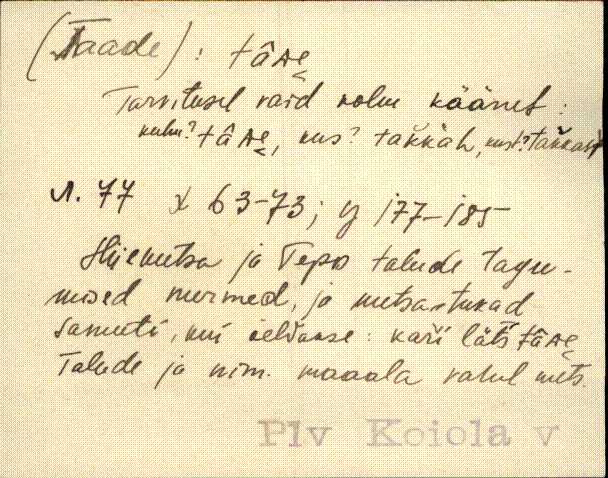 (Taade) : tâᴅe̬
Tarvitusel vaid kolm käänet :
kuhu? tâᴅe̬, kus? takkah, kust? takkast
л. 77 x 63-73; y 177-185
Hiiemetsa ja Tepo talude tagu-
mised nurmed, ja metsatukad
samuti, kui öeldakse: kari läts tâᴅe̬
Talude ja nim. maaala vahel mets.
Plv Koiola v